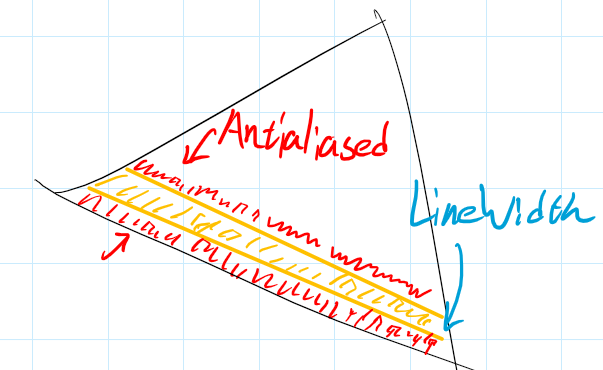 Antialiased
LineWidth